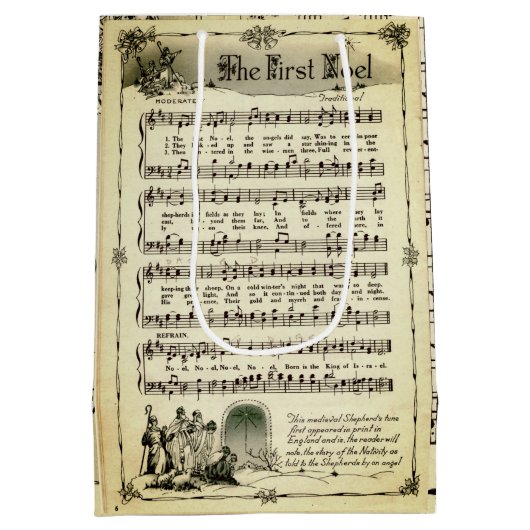 The First Noel
MODERATELY
Traditional
1. The No - el, the an-gels did say, Was to cer-tain poor
2. They look-ed up and saw a star shin-ing in the
3. Then en-tered in the wise-men three, Full rev-er-ent-
shep-herds in fields as they lay; In fields where they lay
east, be-yond them far, And to the earth it
ly up-on their knee, And of-fered there, in
keep-ing their sheep, On a cold win-ter's night that was so deep.
gave great light, And so it con-tin-ued both day and night.
His pres-ence, Their gold and myrrh and frank-in-cense.
REFRAIN.
No-el, No-el, No-el, No-el, Born is the King of Is-ra-el.
This medieval Shepherd's tune
first appeared in print in
England and is, the reader will
note, the story of the Nativity as
told to the Shepherds by an angel
6